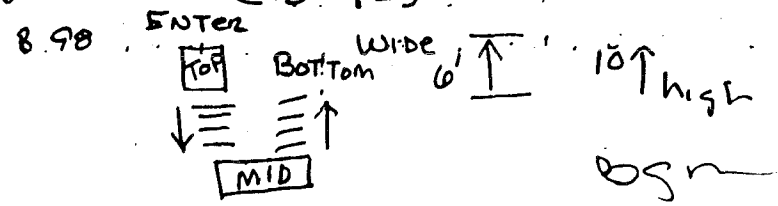 8.98 ENTER
TOP BOTTOM WIDE 6' 10 high
MID